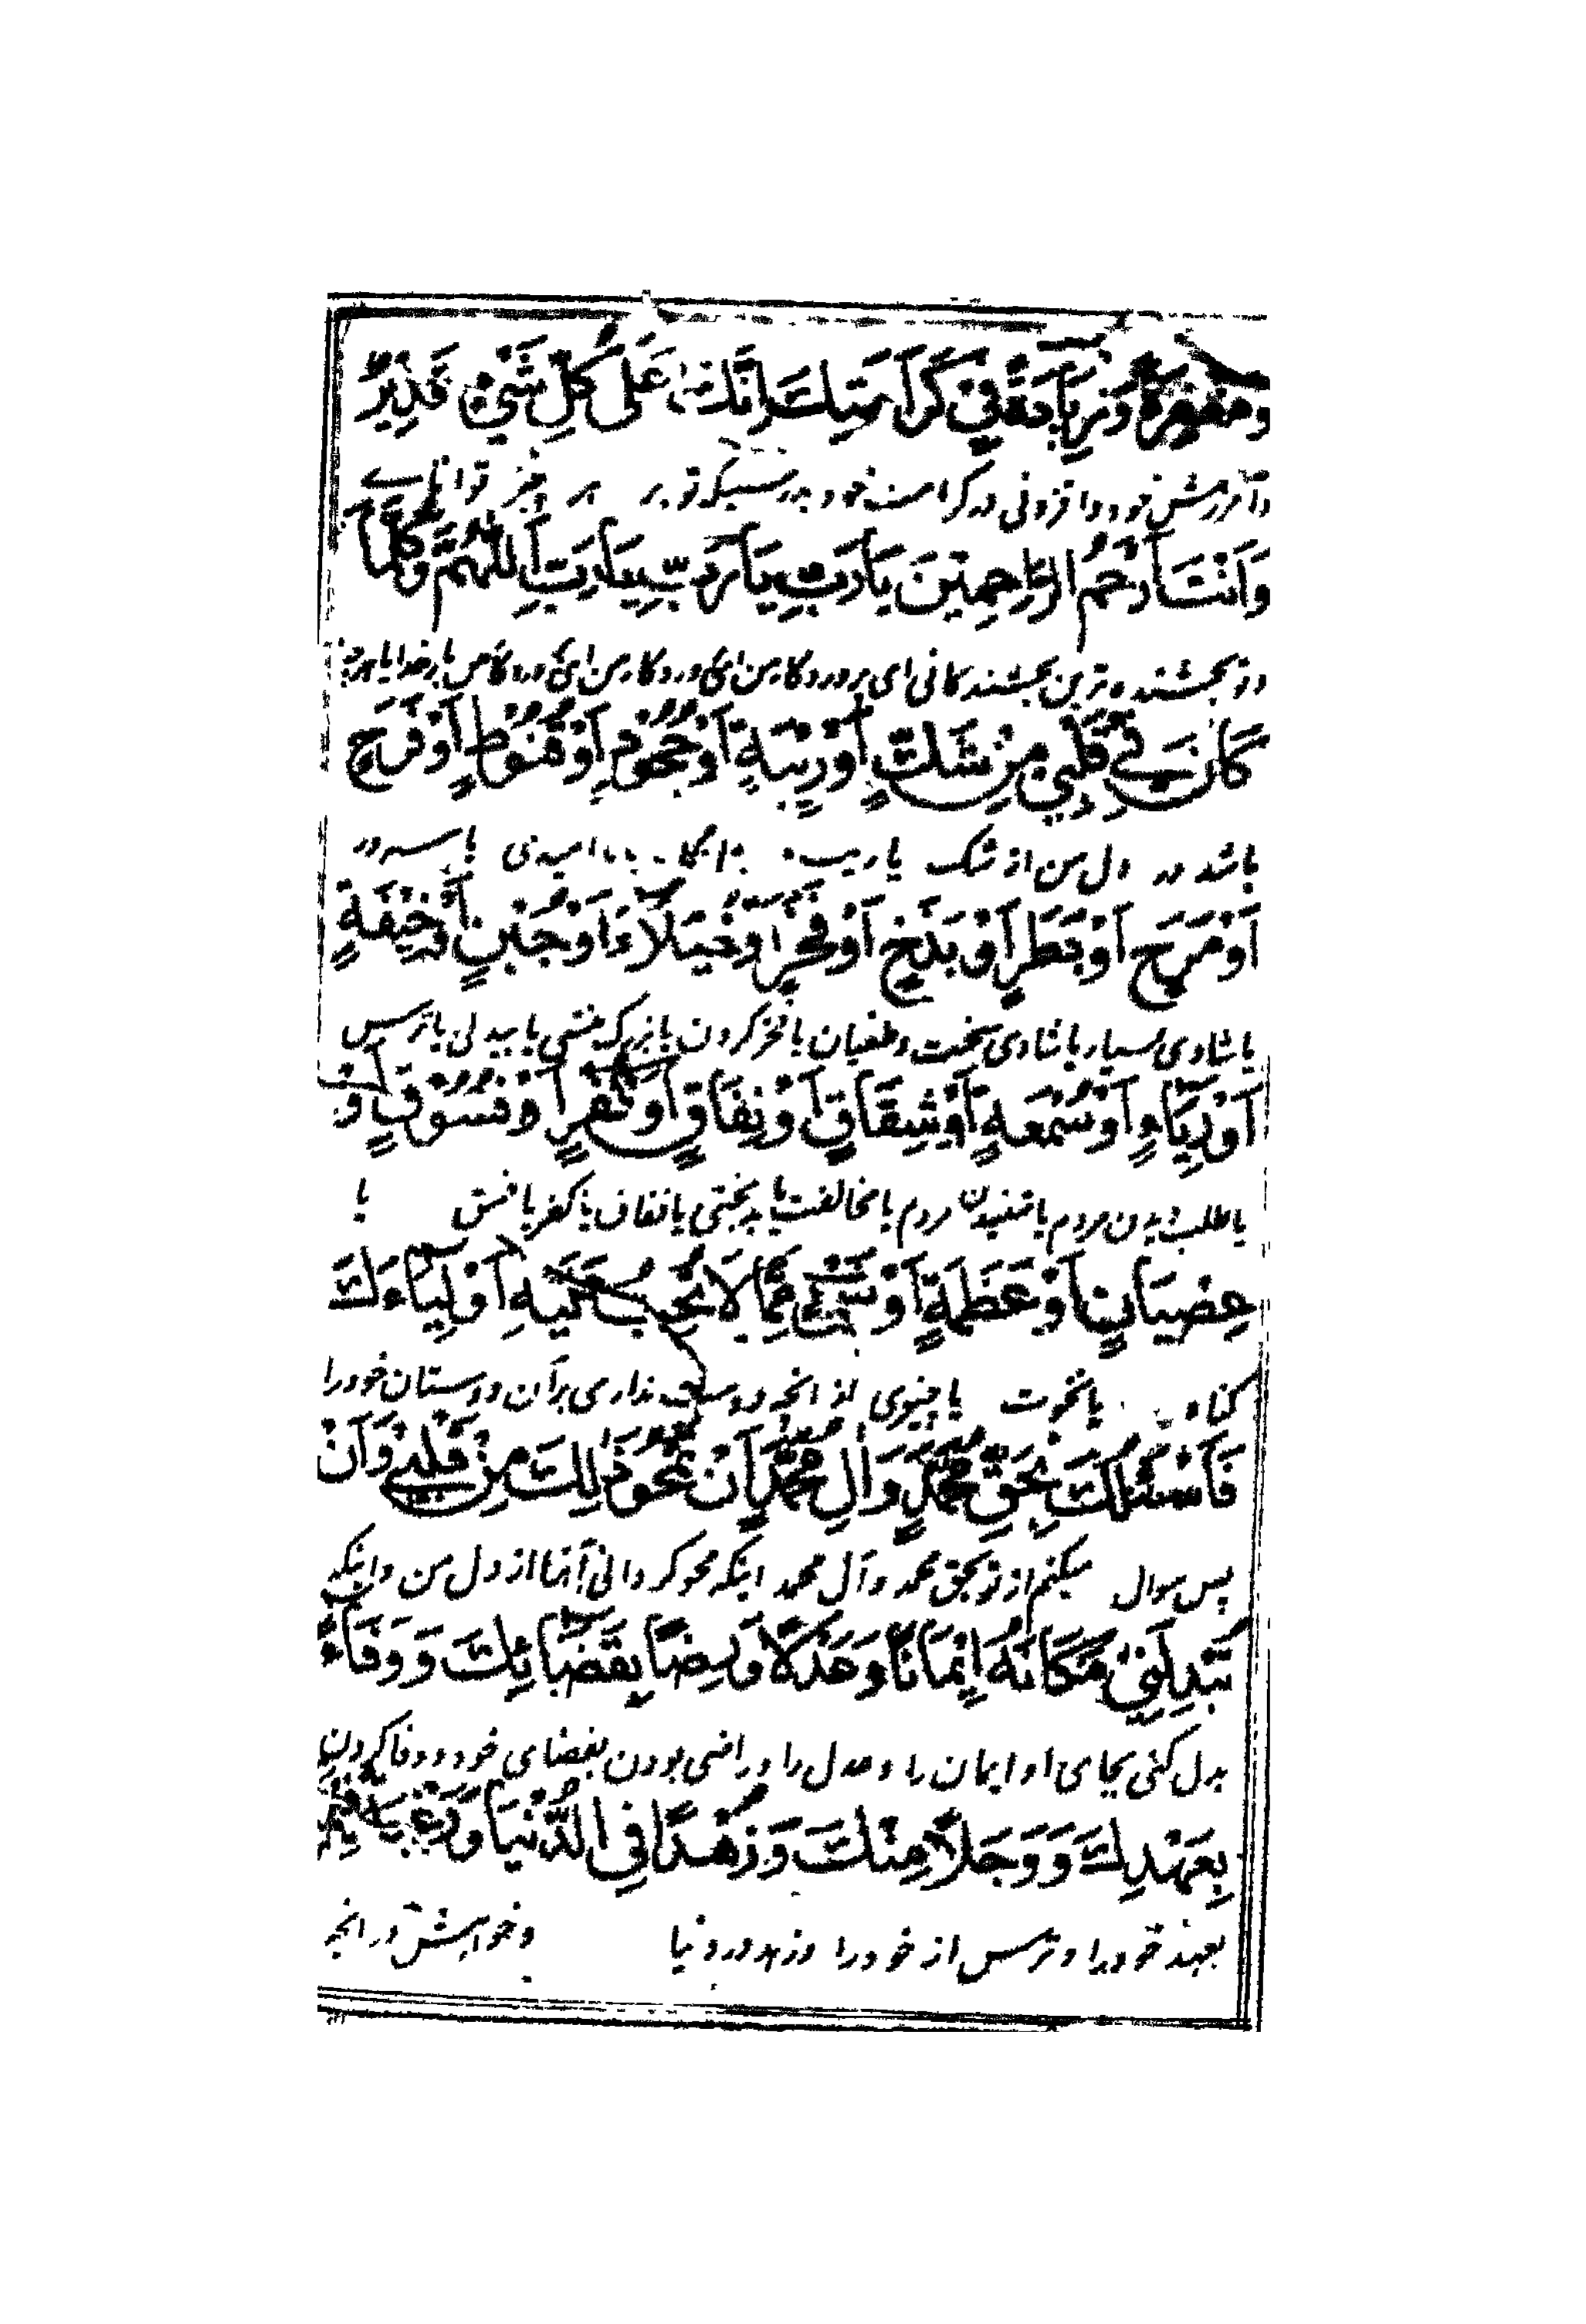 وَمَغْفِرَةً وَزِيَادَةً فِي كَرَامَتِكَ اِنَّكَ عَلَى كُلِّ شَيْءٍ قَدِيْرٌ
وآمرزش خود و افزونی در کرامت خود بدرستیکه تو بر هر چیز توانائے
وَاَنْتَ اَرْحَمُ الرَّاحِمِيْنَ يَا رَبِّ يَا رَبِّ يَا رَبِّ اَللّٰهُمَّ وَكُلَّمَا
و تو بخشنده ترین بخشندگانی ای پروردگار من ای پروردگار من ای پروردگار من بار خدایا هرچه
كَانَ فِي قَلْبِي مِنْ شَكٍّ اَوْ رِيْبَةٍ اَوْ جُحُوْدٍ اَوْ قُنُوْطٍ اَوْ فَرَحٍ
باشد در دل من از شک یا ریب امیدی یا سرور
اَوْ مَرَحٍ اَوْ بَطَرٍ اَوْ بَذَخٍ اَوْ فَخْرٍ اَوْ خُيَلَاءَ اَوْ جُبْنٍ اَوْ خِيْفَةٍ
یا شادی بسیار یا شادی سخت و طغیان یا فخر کردن یا بزرگ منشی یا بیدلی یا ترس
اَوْ رِيَاءٍ اَوْ سُمْعَةٍ اَوْ شِقَاقٍ اَوْ نِفَاقٍ اَوْ كُفْرٍ اَوْ فُسُوْقٍ اَوْ
یا طلب دیدن مردم یا شنیدن مردم یا مخالفت یا بدبختی یا نفاق یا کفر یا فسق یا
عِصْيَانٍ اَوْ عَظَمَةٍ اَوْ شَيْءٍ مِمَّا لَا تُحِبُّ عَلَيْهِ اَوْلِيَاءَكَ
گناه یا نخوت یا چیزی از انچه دوست نداری بر آن دوستان خود را
فَاَسْئَلُكَ بِحَقِّ مُحَمَّدٍ وَاٰلِ مُحَمَّدٍ اَنْ تَمْحُوَ ذٰلِكَ مِنْ قَلْبِي وَاَنْ
پس سوال میکنم از تو بحق محمد و آل محمد اینکه محو گردانی آنها از دل من و اینکه
تُبَدِّلَنِي مَكَانَهُ اِيْمَانًا وَعَدْلًا وَرِضًا بِقَضَائِكَ وَوَفَاءً
بدل کنی بجای او ایمان را و عدل را و راضی بودن بقضای خود و وفا کردن
بِعَهْدِكَ وَوَجَلًا مِنْكَ وَزُهْدًا فِي الدُّنْيَا وَرَغْبَةً فِيْمَا
بعهد خود را و ترس از خود را و زهد در دنیا و خواهش در انچه